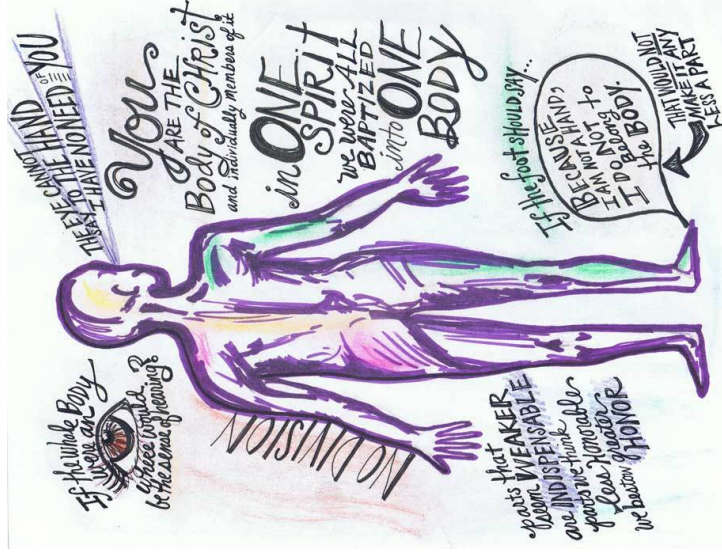 THE EYE CANNOT
SAY TO THE HAND
I HAVE NO NEED OF YOU
You
ARE THE
Body of CHRIST
and individually members of it
in ONE
SPIRIT
we were ALL
BAPTIZED
into ONE
BODY
If the foot SHOULD SAY...
BECAUSE
I AM NOT A HAND,
I AM NOT
I DO belong to
the BODY.
THAT WOULD NOT
MAKE IT ANY
LESS A PART
If the whole Body
were an
where would
be the sense of hearing?
NO DIVISION
parts that
seem WEAKER
are INDISPENSABLE
parts we think
less Honorable
we bestow greater
HONOR